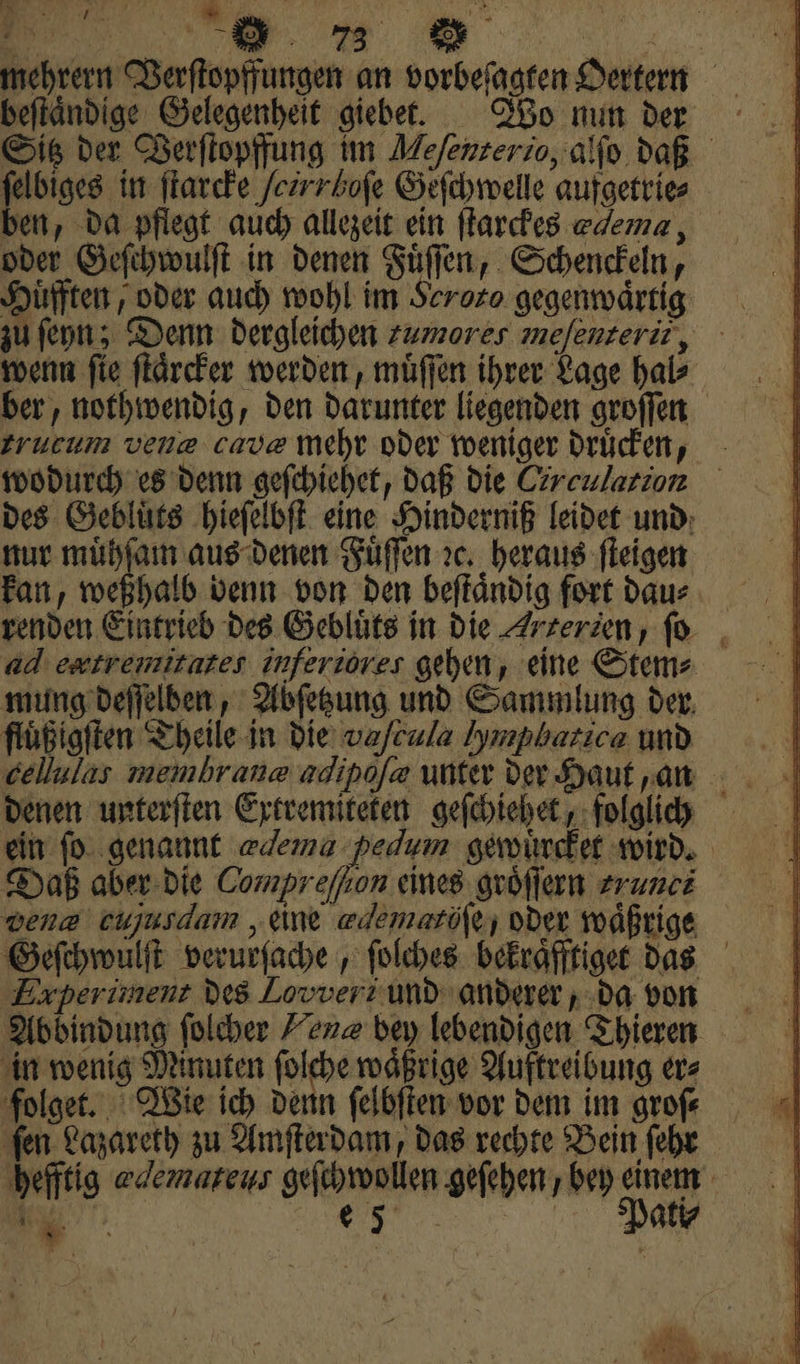 73
mehrern Verſtopffungen an vorbeſagten Oertern
beſtaͤndige Gelegenheit giebet. Wo nun der
Sitz der Verſtopffung im Meſenterio, alſo daß
ſelbiges in ſtarcke ſcirrhoſe Geſchwelle aufgetrie⸗
ben, da pflegt auch allezeit ein ſtarckes œdema,
oder Geſchwulſt in denen Fuͤſſen, Schenckeln,
Huͤfften, oder auch wohl im Scroto gegenwaͤrtig
zu ſeyn; Denn dergleichen tumores meſenterii,
wenn ſie ſtaͤrcker werden, muͤſſen ihrer Lage hal⸗
ber, nothwendig, den darunter liegenden groſſen
trucum venæ cavæ mehr oder weniger druͤcken,
wodurch es denn geſchiehet, daß die Circulation
des Gebluͤts hieſelbſt eine Hinderniß leidet und
nur muͤhſam aus denen Fuͤſſen ꝛc. heraus ſteigen
kan, weßhalb denn von den beſtaͤndig fort dau⸗
renden Eintrieb des Gebluͤts in die Arterien, ſo
ad extremitates inferiores gehen, eine Stem⸗
mung deſſelben, Abſetzung und Sammlung der
fluͤßigſten Theile in die vaſcula lymphatica und
cellulas membranæ adipoſæ unter der Haut, an
denen unterſten Extremiteten geſchiehet, folglich
ein ſo genannt œdema pedum gewuͤrcket wird.
Daß aber die Compreſſion eines groͤſſern trunci
venæ cujusdam, eine œdematoͤſe, oder waͤßrige
Geſchwulſt verurſache, ſolches bekraͤfftiget das
Experiment des Lovveri und anderer, da von
Abbindung ſolcher Venæ bey lebendigen Thieren
in wenig Minuten ſolche waͤßrige Auftreibung er⸗
folget. Wie ich denn ſelbſten vor dem im groſ⸗
ſen Lazareth zu Amſterdam, das rechte Bein ſehr
hefftig œdemateus geſchwollen geſehen, bey einem
e 5 Pati⸗